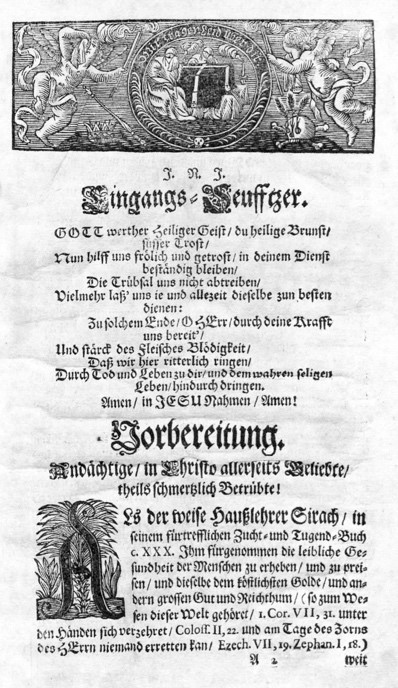 J. N. J.
Eingangs-Seufftzer.
GOTT werther Heiliger Geist/ du heilige Brunst/
süsser Trost/
Nun hilff uns frölich und getrost/ in deinem Dienst
beständig bleiben/
Die Trübsal uns nicht abtreiben/
Vielmehr laß' uns ie und allezeit dieselbe zun besten
dienen:
Zu solchem Ende/ O HErr/ durch deine Krafft
uns bereit'/
Und stärck des Fleisches Blödigkeit/
Daß wir hier ritterlich ringen/
Durch Tod und Leben zu dir/ und dem wahren seligen
Leben/ hindurch dringen.
Amen/ in JESU Nahmen/ Amen!
Vorbereitung.
Andächtige/ in Christo allerseits Geliebte/
theils schmertzlich Betrübte!
ALs der weise Haußlehrer Sirach/ in
seinem fürtrefflichen Zucht- und Tugend-Buch
c. XXX. Jhm fürgenommen die leibliche Ge-
sundheit der Menschen zu erheben/ und zu prei-
sen/ und dieselbe dem köstlichsten Golde/ und an-
dern grossen Gut und Reichthum/ (so zum We-
sen dieser Welt gehöret/ 1. Cor. VII, 31. unter
den Händen sich verzehret/ Coloss. II, 22. und am Tage des Zorns
des HErrn niemand erretten kan/ Ezech. VII, 19. Zephan. I, 18.)
A 2 weit